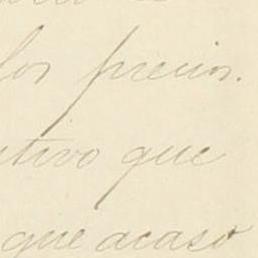 los precios.
utivo que
que acaso